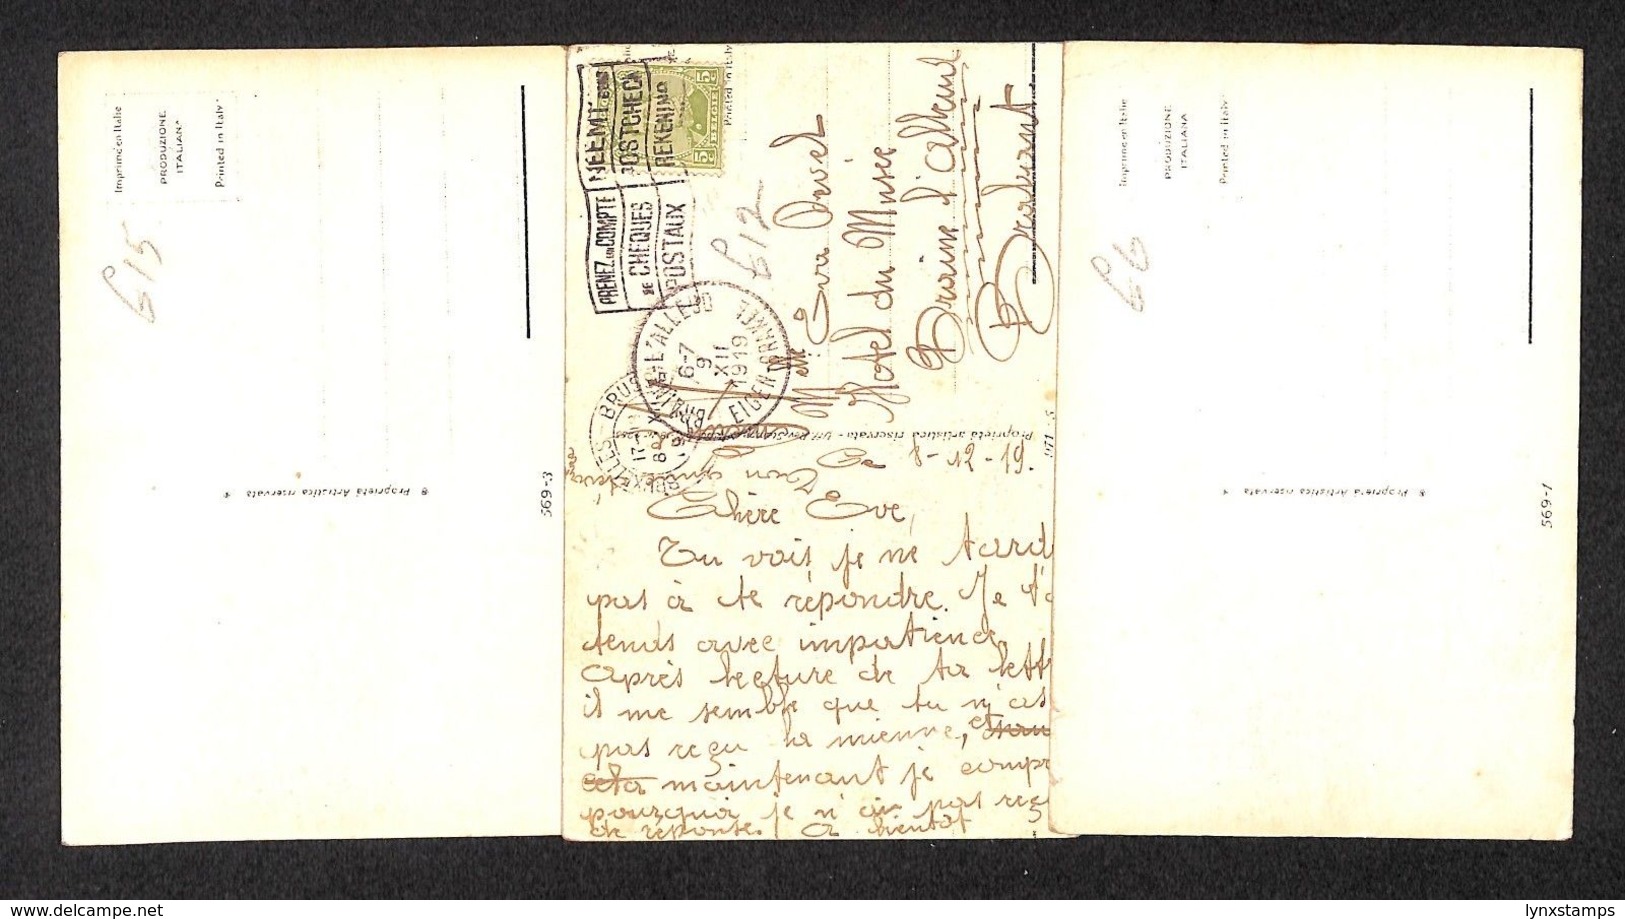 Imprimé en Italie
PRODUZIONE
ITALIANA
Printed in Italy
£15
Proprietà Artistica riservata
569-3
NEEMT EEN
POSTCHECK
REKENING
PRENEZ UN COMPTE
DE CHEQUES
POSTAUX
5c
5c
Printed in Italy
£12
BRAINE-L'ALLEUD
6-7
9
XII
1919
EIGEN
Mlle Eva
Hotel du Musée
Braine l'alleud
Brabant
Proprietà artistica riservata
971
8-12-19.
Chère Eve,
Tu vois je ne tard
pas à te répondre. Je t'a
tends avec impatience
Après lecture de ta lett
il me semble que tu n'as
pas reçu la mienne, et
maintenant je compr
pourquoi je n'ai pas reç
de réponse. A bientôt
Imprimé en Italie
PRODUZIONE
ITALIANA
Printed in Italy
£6
Proprietà Artistica riservata
569-1
delcampe.net
lynxstamps